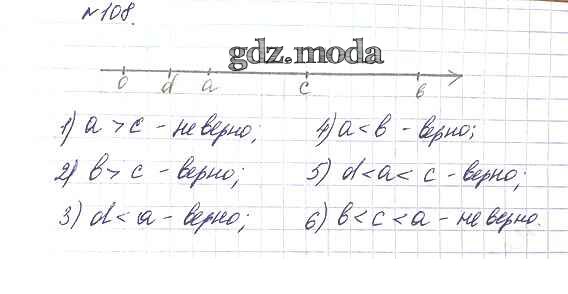 №108.
gdz.moda
0 d a c в
1) a > c - неверно; 4) a < в - верно;
2) в > c - верно; 5) d < a < c - верно;
3) d < a - верно; 6) в < c < a - неверно.